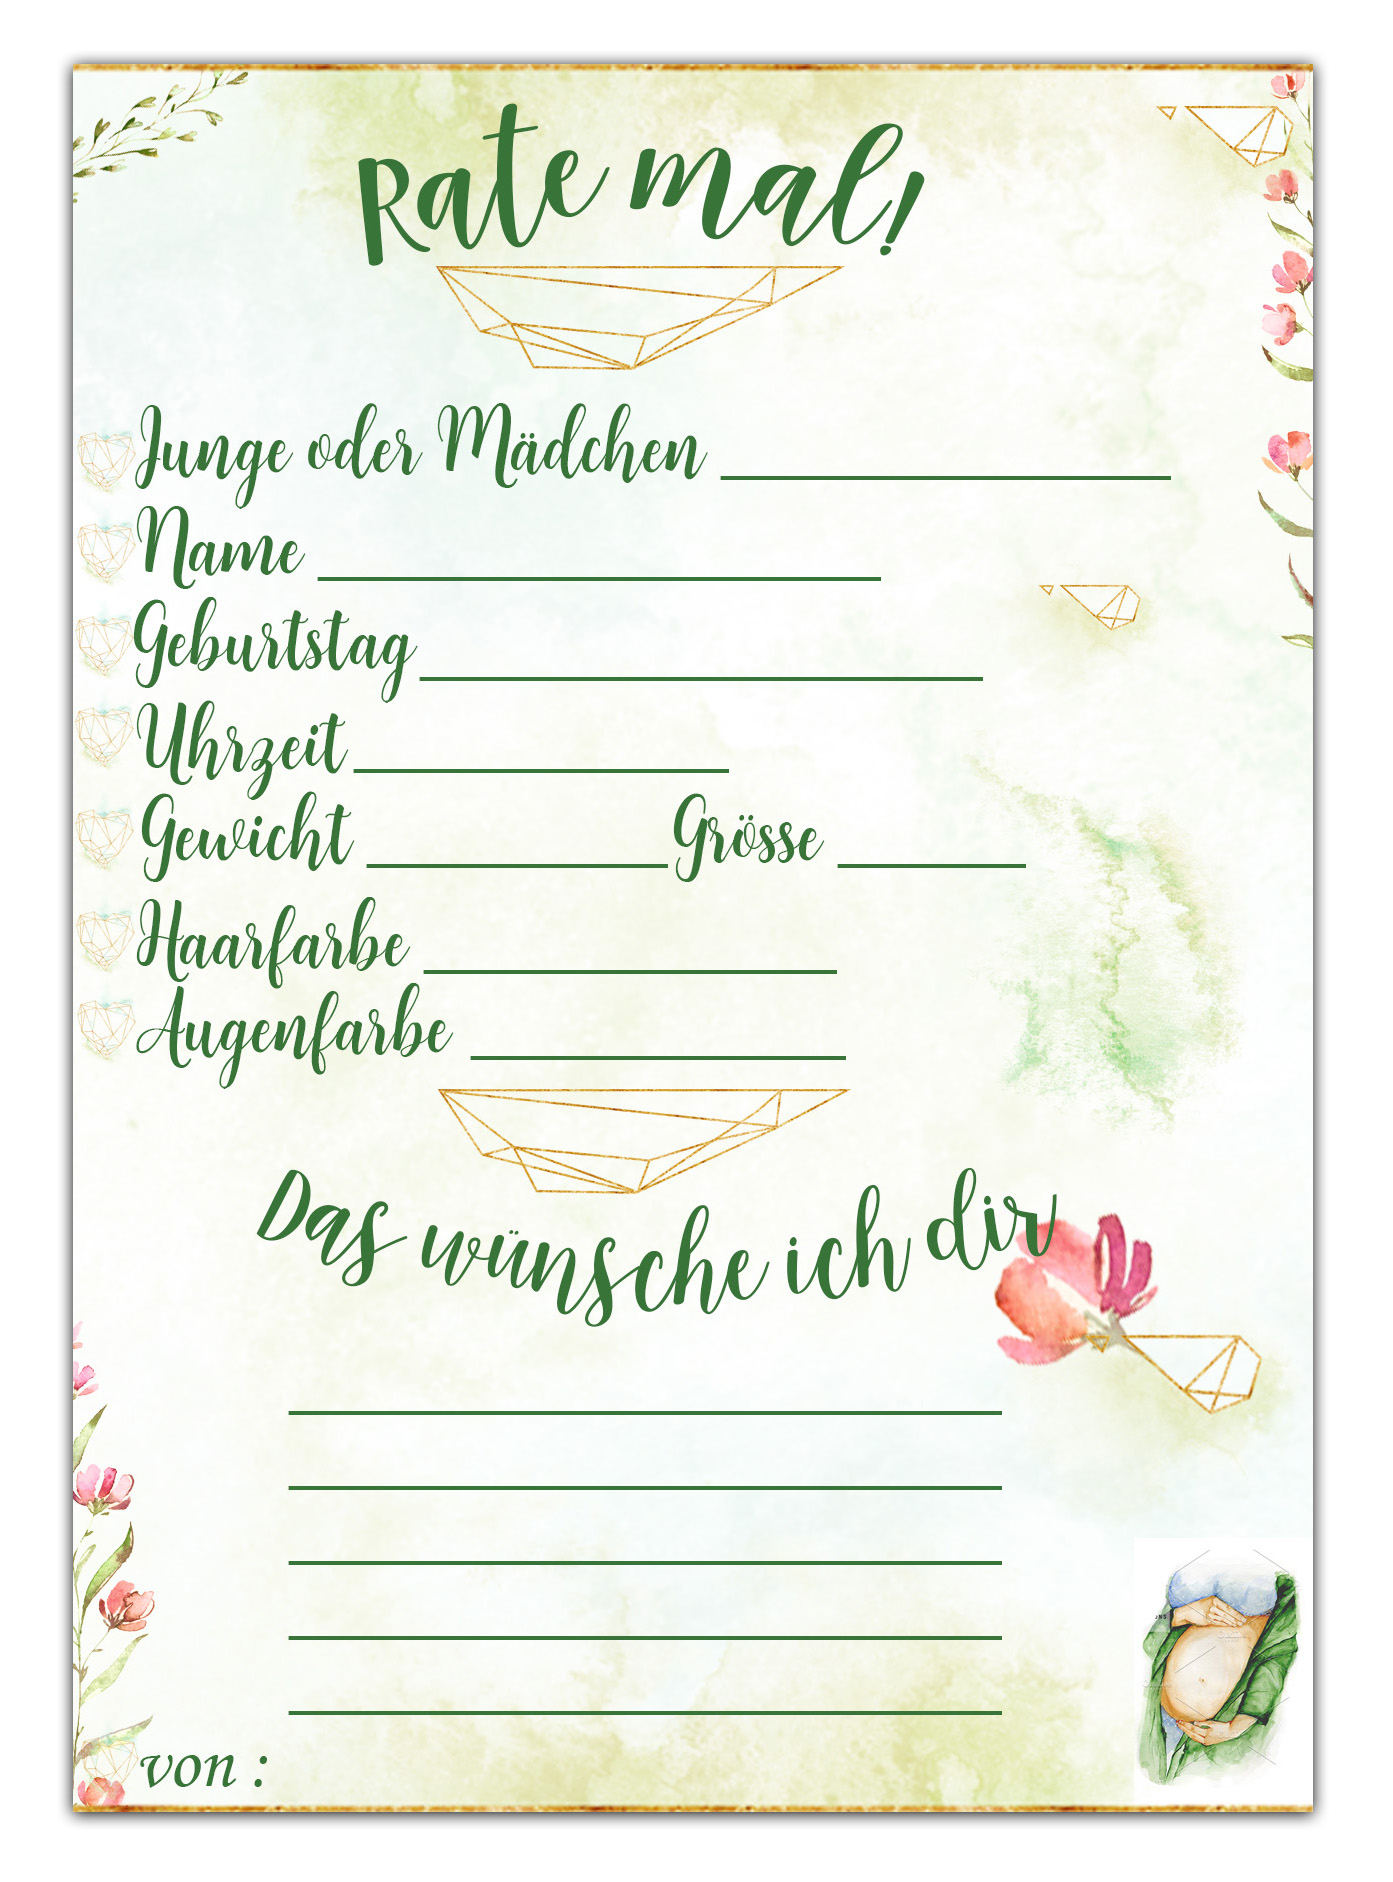 Rate mal!
Junge oder Mädchen
Name
Geburtstag
Uhrzeit
Gewicht Grösse
Haarfarbe
Augenfarbe
Das wünsche ich dir
von :